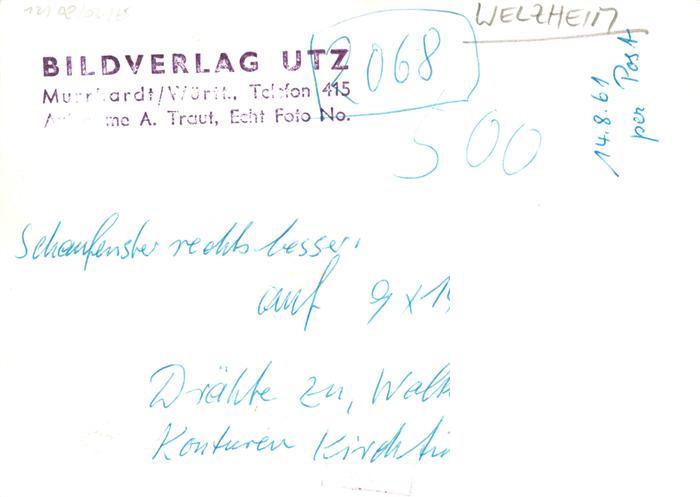 WELZHEIM
BILDVERLAG UTZ
Murrhardt/Württ., Telefon 415
A. Traut, Echt Foto No.
2068
500
14.8.61
per Post
Schaufenster rechts besser.
auf 9x1
Drähte zu,
Konturen